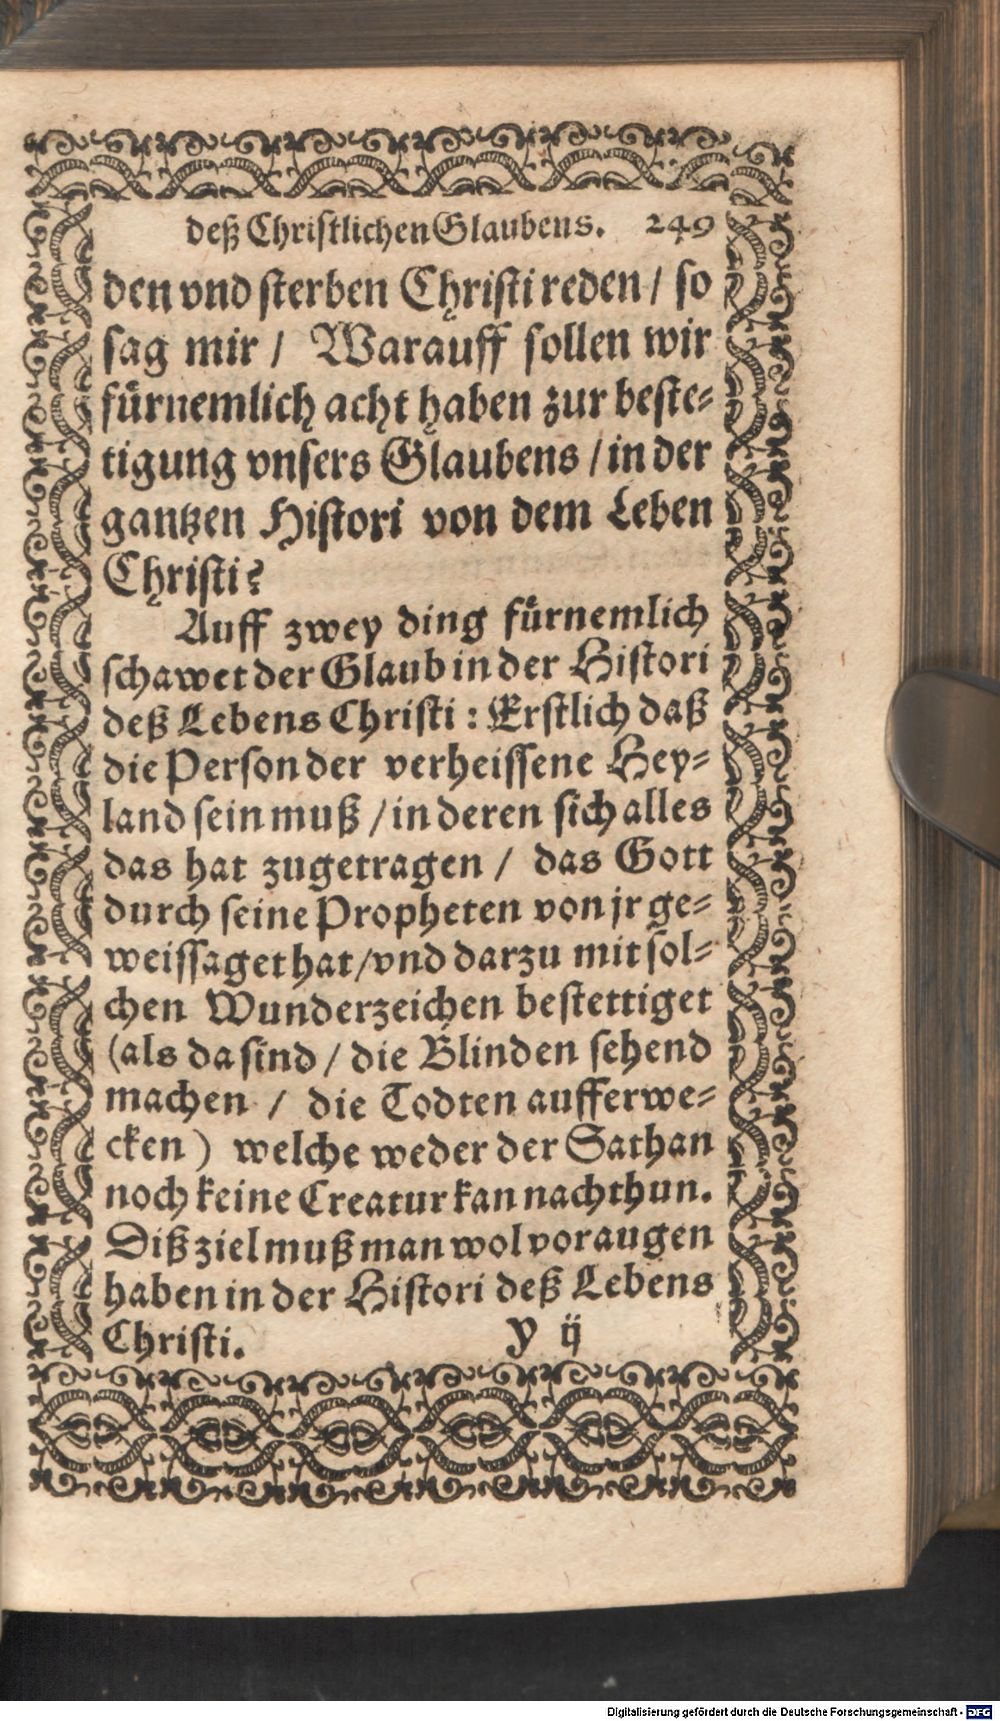 deß Christlichen Glaubens. 249
den vnd sterben Christi reden / so
sag mir / Warauff sollen wir
fürnemlich acht haben zur beste-
tigung vnsers Glaubens / in der
gantzen Histori von dem Leben
Christi?
Auff zwey ding fürnemlich
schawet der Glaub in der Histori
deß Lebens Christi : Erstlich daß
die Person der verheissene Hey-
land sein muß / in deren sich alles
das hat zugetragen / das Gott
durch seine Propheten von jr ge-
weissaget hat / vnd darzu mit sol-
chen Wunderzeichen bestettiget
(als da sind / die Blinden sehend
machen / die Todten aufferwe-
cken) welche weder der Sathan
noch keine Creatur kan nachthun.
Diß ziel muß man wol vor augen
haben in der Histori deß Lebens
Christi. y ij
Digitalisierung gefördert durch die Deutsche Forschungsgemeinschaft - DFG